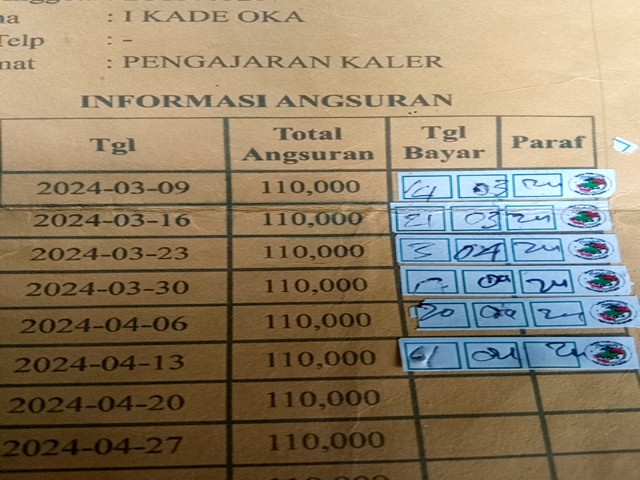 : I KADE OKA
Telp : -
: PENGAJARAN KALER
INFORMASI ANGSURAN
Tgl Total Angsuran Tgl Bayar Paraf
2024-03-09 110,000 03 24
2024-03-16 110,000 21 03 24
2024-03-23 110,000 5 04 24
2024-03-30 110,000 04 24
2024-04-06 110,000 20 04 24
2024-04-13 110,000 04 24
2024-04-20 110,000
2024-04-27 110,000